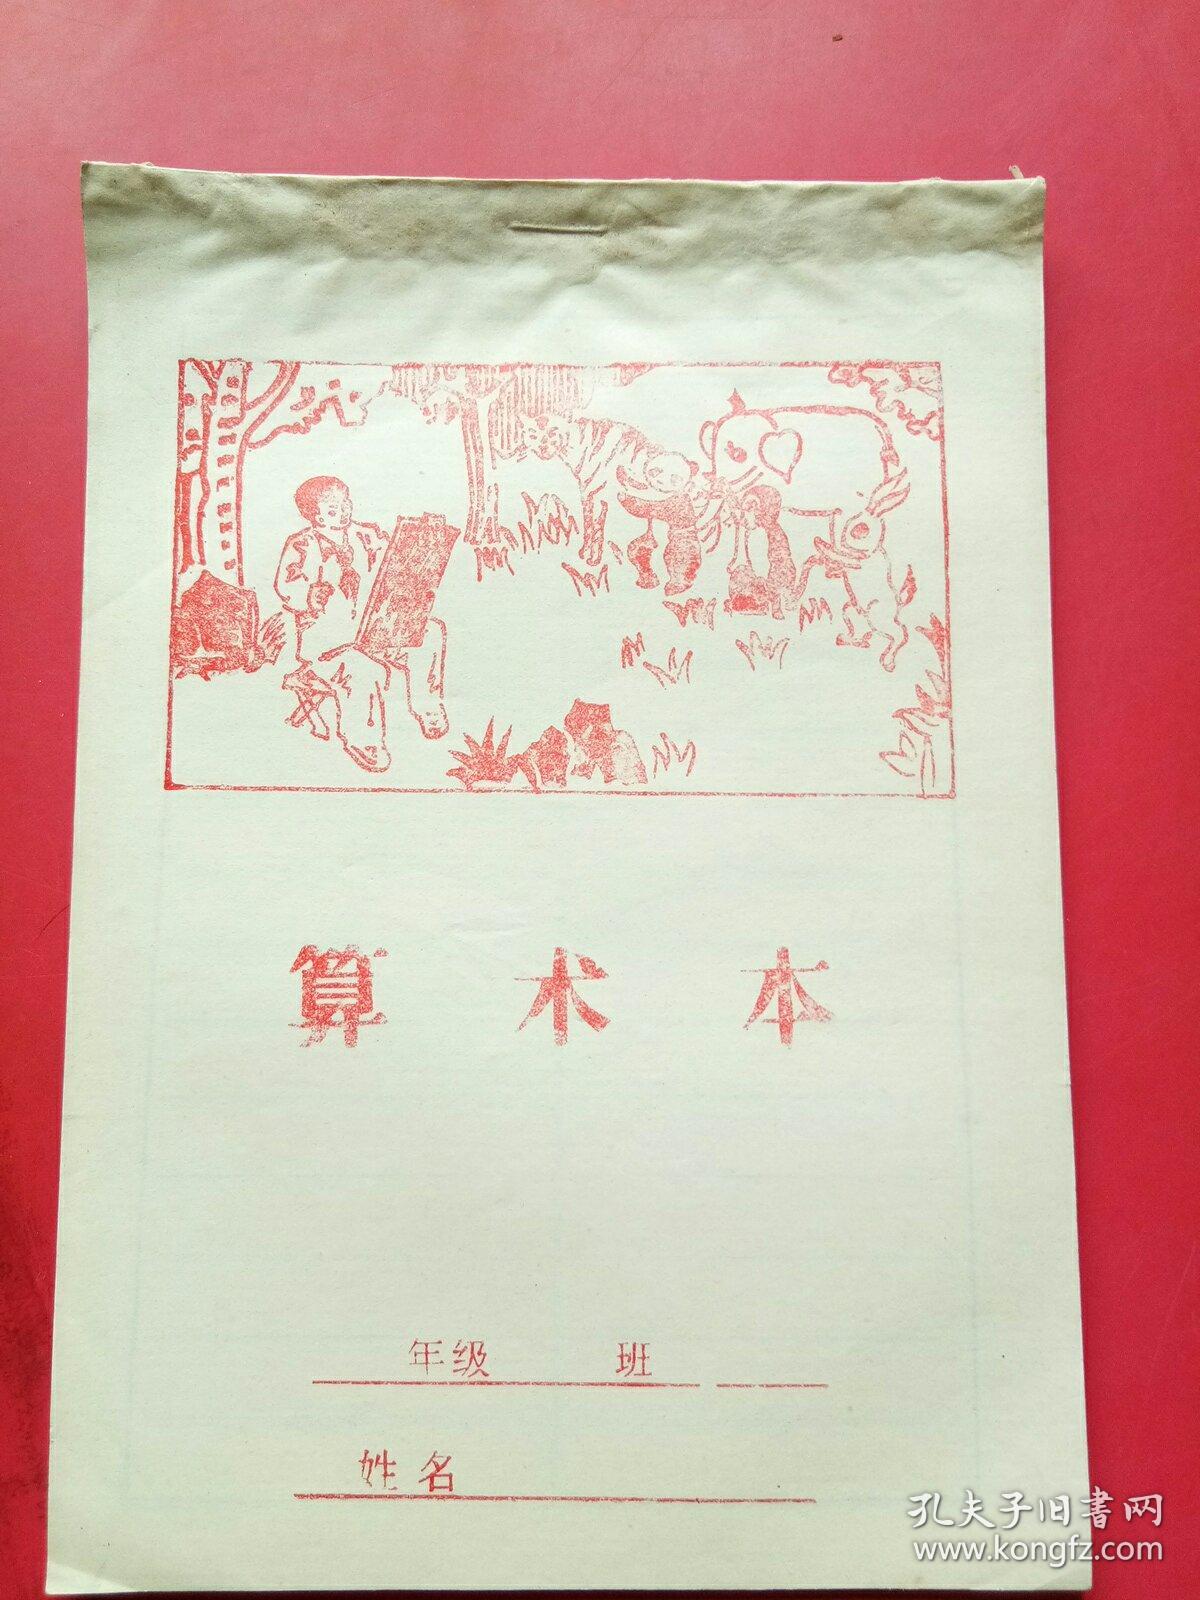 算术本
年级 班
姓名
孔夫子旧書网
www.kongfz.com